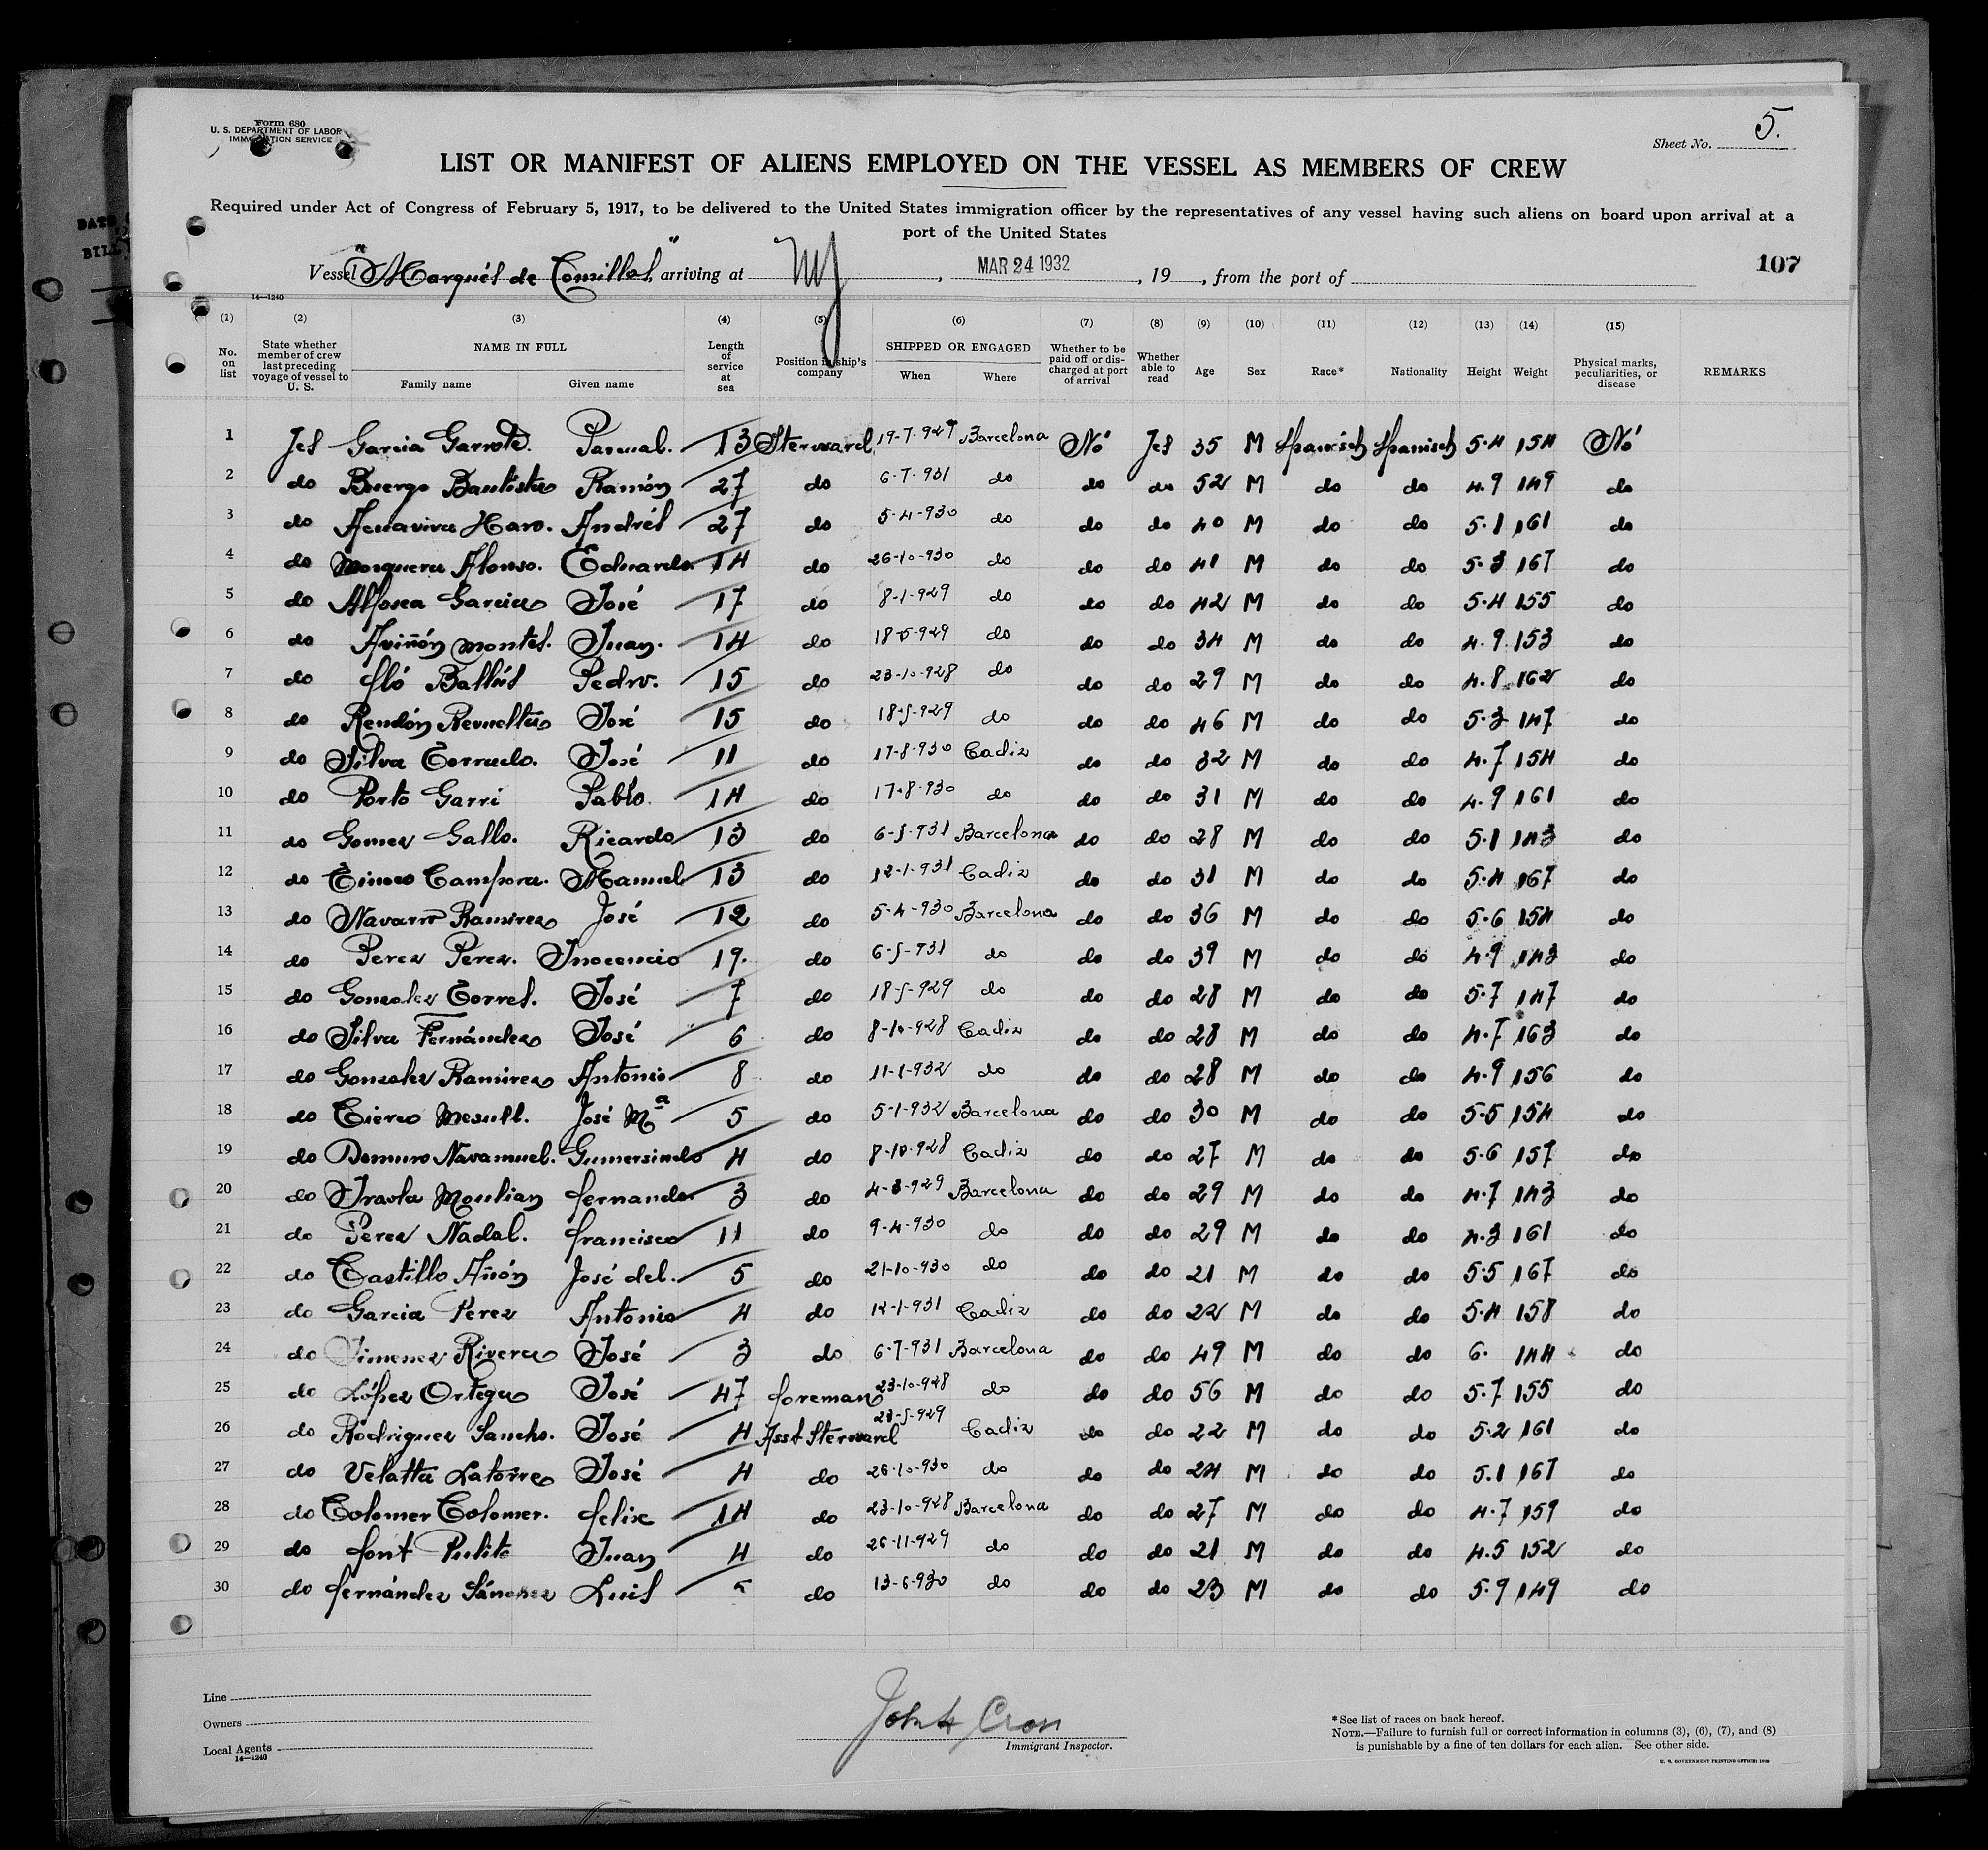 Form 680
U. S. DEPARTMENT OF LABOR
IMMIGRATION SERVICE
Sheet No. 5.
LIST OR MANIFEST OF ALIENS EMPLOYED ON THE VESSEL AS MEMBERS OF CREW
Required under Act of Congress of February 5, 1917, to be delivered to the United States immigration officer by the representatives of any vessel having such aliens on board upon arrival at a
port of the United States
Vessel "Marqués de Comillas" arriving at NY, MAR 24 1932, 19 , from the port of
107
14—1240
(1) (2) (3) (4) (5) (6) (7) (8) (9) (10) (11) (12) (13) (14) (15)
No. on list State whether member of crew last preceding voyage of vessel to U. S. NAME IN FULL Family name Given name Length of service at sea Position in ship's company SHIPPED OR ENGAGED When Where Whether to be paid off or discharged at port of arrival Whether able to read Age Sex Race* Nationality Height Weight Physical marks, peculiarities, or disease REMARKS
1 Jes Garcia Garrote. Pascual. 13 Steward 19-7-927 Barcelona No Jes 35 M Spanisch Spanisch 5-4 154 No
2 do Buergo Bautista Ramón 27 do 6-7-931 do do do 52 M do do 4.9 149 do
3 do Haro. Andrés 27 do 5-4-930 do do do 40 M do do 5-1 161 do
4 do Mosquera Alonso. Eduardo. 14 do 26-10-930 do do do 41 M do do 5-3 167 do
5 do Alfosea Garcia José 17 do 8-1-929 do do do 42 M do do 5-4 155 do
6 do Aviñón Montes. Juan. 14 do 18-5-929 do do do 34 M do do 4.9 153 do
7 do Ballús Pedro. 15 do 23-10-928 do do do 29 M do do 4.8 162 do
8 do Rendón Revuelta José 15 do 18-5-929 do do do 46 M do do 5-3 147 do
9 do Silva José 11 do 17-8-930 Cadiz do do 32 M do do 4-7 154 do
10 do Porto Garri Pablo. 14 do 17-8-930 do do do 31 M do do 4.9 161 do
11 do Gomez Gallo. Ricardo 13 do 6-5-931 Barcelona do do 28 M do do 5.1 143 do
12 do Campora. Manuel 13 do 12-1-931 Cadiz do do 31 M do do 5-4 167 do
13 do Navarro Ramirez José 12 do 5-4-930 Barcelona do do 36 M do do 5-6 154 do
14 do Perez Perez. Inocencio 19. do 6-5-931 do do do 39 M do do 4-9 143 do
15 do Gonzalez Torres. José 7 do 18-5-929 do do do 28 M do do 5-7 147 do
16 do Silva Fernández José 6 do 8-10-928 Cadiz do do 28 M do do 4-7 163 do
17 do Gonzalez Ramirez Antonio 8 do 11-1-932 do do do 28 M do do 4-9 156 do
18 do José Mª 5 do 5-1-932 Barcelona do do 30 M do do 5-5 154 do
19 do Navamuel. Gumersindo 4 do 8-10-928 Cadiz do do 27 M do do 5-6 157 do
20 do Fernando. 3 do 4-8-929 Barcelona do do 29 M do do 4-7 143 do
21 do Perez Nadal. Francisco 11 do 9-4-930 do do do 29 M do do 4-3 161 do
22 do Castillo Añón José del. 5 do 21-10-930 do do do 21 M do do 5-5 167 do
23 do Garcia Perez Antonio 4 do 12-1-931 Cadiz do do 22 M do do 5-4 158 do
24 do Jimenez Rivera José 3 do 6-7-931 Barcelona do do 49 M do do 6. 144 do
25 do López Ortega José 47 foreman 23-10-928 do do do 56 M do do 5-7 155 do
26 do Rodriguez Sancho. José 4 Asst Steward 28-5-929 Cadiz do do 22 M do do 5-2 161 do
27 do Velatta Latorre José 4 do 26-10-930 do do do 24 M do do 5.1 167 do
28 do Colomer Colomer. felix 14 do 23-10-928 Barcelona do do 27 M do do 4-7 159 do
29 do font Pulito Juan 4 do 26-11-929 do do do 21 M do do 4.5 152 do
30 do fernández Sánchez Luis do 13-6-930 do do do 23 M do do 5.9 149 do
Line
Owners
Local Agents
14—1240
John H Cross
Immigrant Inspector.
*See list of races on back hereof.
NOTE.—Failure to furnish full or correct information in columns (3), (6), (7), and (8)
is punishable by a fine of ten dollars for each alien. See other side.